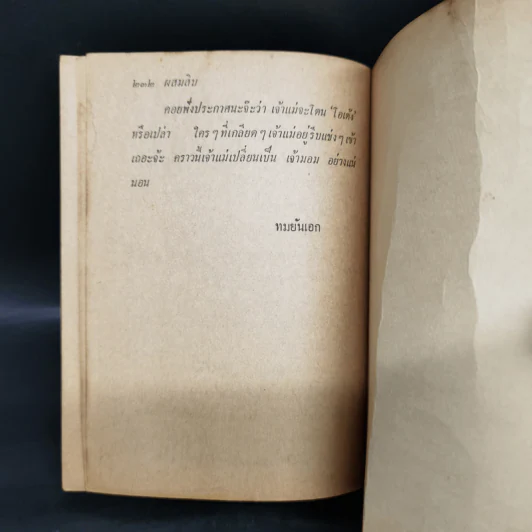 ๒๓๒ ผสมสิบ
คอยฟังประกาศนะจ๊ะว่า เจ้าแม่จะโดน 'ไอเค้ง'
หรือเปล่า ใคร ๆ ที่เกลียด ๆ เจ้าแม่อยู่รีบแช่ง ๆ เข้า
เถอะจ้ะ คราวนี้เจ้าแม่เปลี่ยนเป็น เจ้ามอม อย่างแน่
นอน
ทมยันเอก